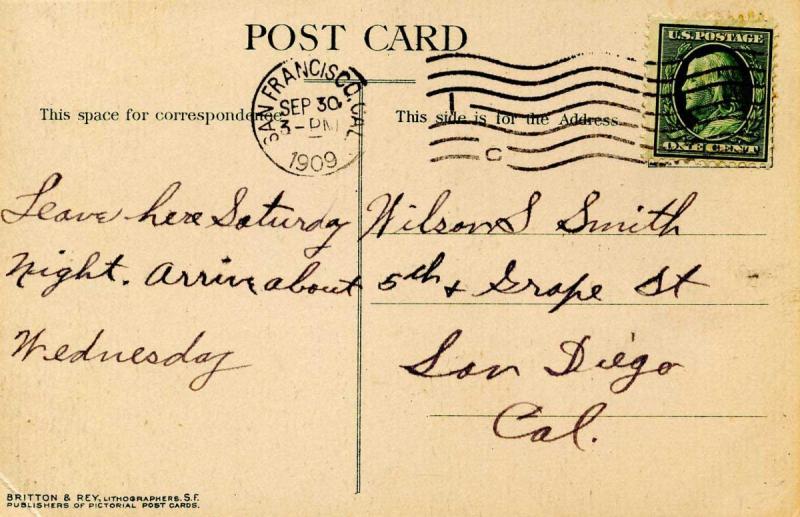 POST CARD
SAN FRANCISCO, CAL.
SEP 30
3-PM
1909
U.S. POSTAGE
ONE CENT
This space for correspondence
This side is for the Address
Leave here Saturday
night. Arrive about
Wednesday
Wilson S Smith
5th + Grape St
San Diego
Cal.
BRITTON & REY, LITHOGRAPHERS. S.F.
PUBLISHERS OF PICTORIAL POST CARDS.